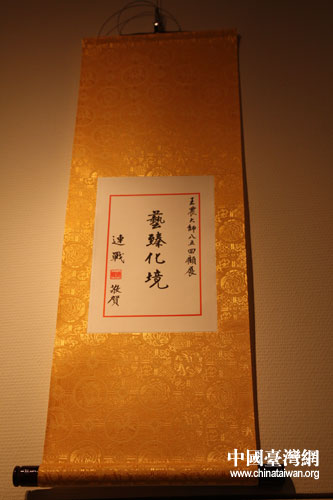 王農大師八五回顧展
藝臻化境
連戰
敬賀
中國臺灣網
www.chinataiwan.org